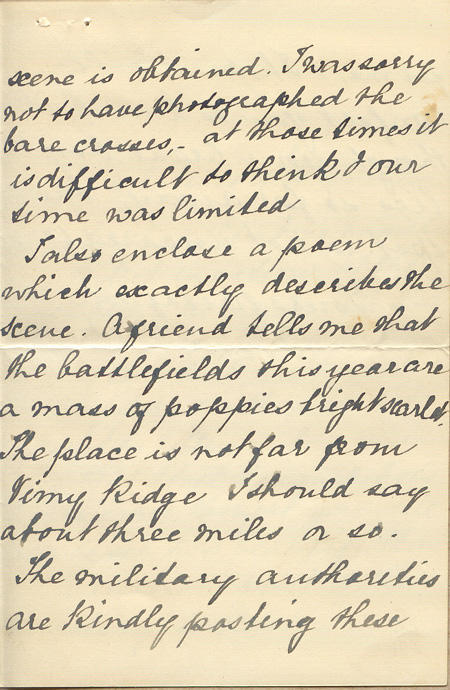 scene is obtained. I was sorry
not to have photographed the
bare crosses,- at those times it
is difficult to think & our
time was limited
I also enclose a poem
which exactly describes the
scene. A friend tells me that
the battlefields this year are
a mass of poppies bright scarlet.
The place is not far from
Vimy Ridge I should say
about three miles or so.
The military authorities
are kindly posting these